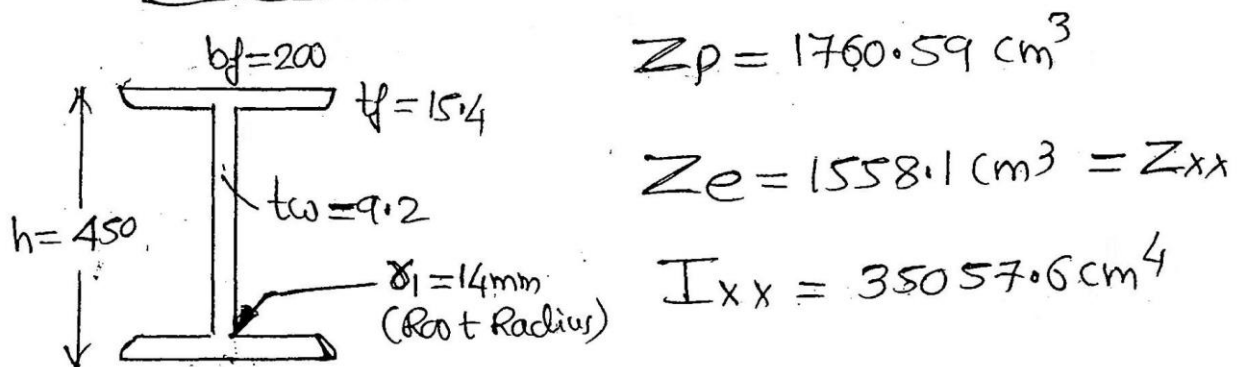 bf=200
tf=15.4
h=450
tω=9.2
γ1=14mm
(Root Radius)
Zp = 1760.59 cm³
Ze = 1558.1 cm³ = Zxx
Ixx = 35057.6 cm⁴